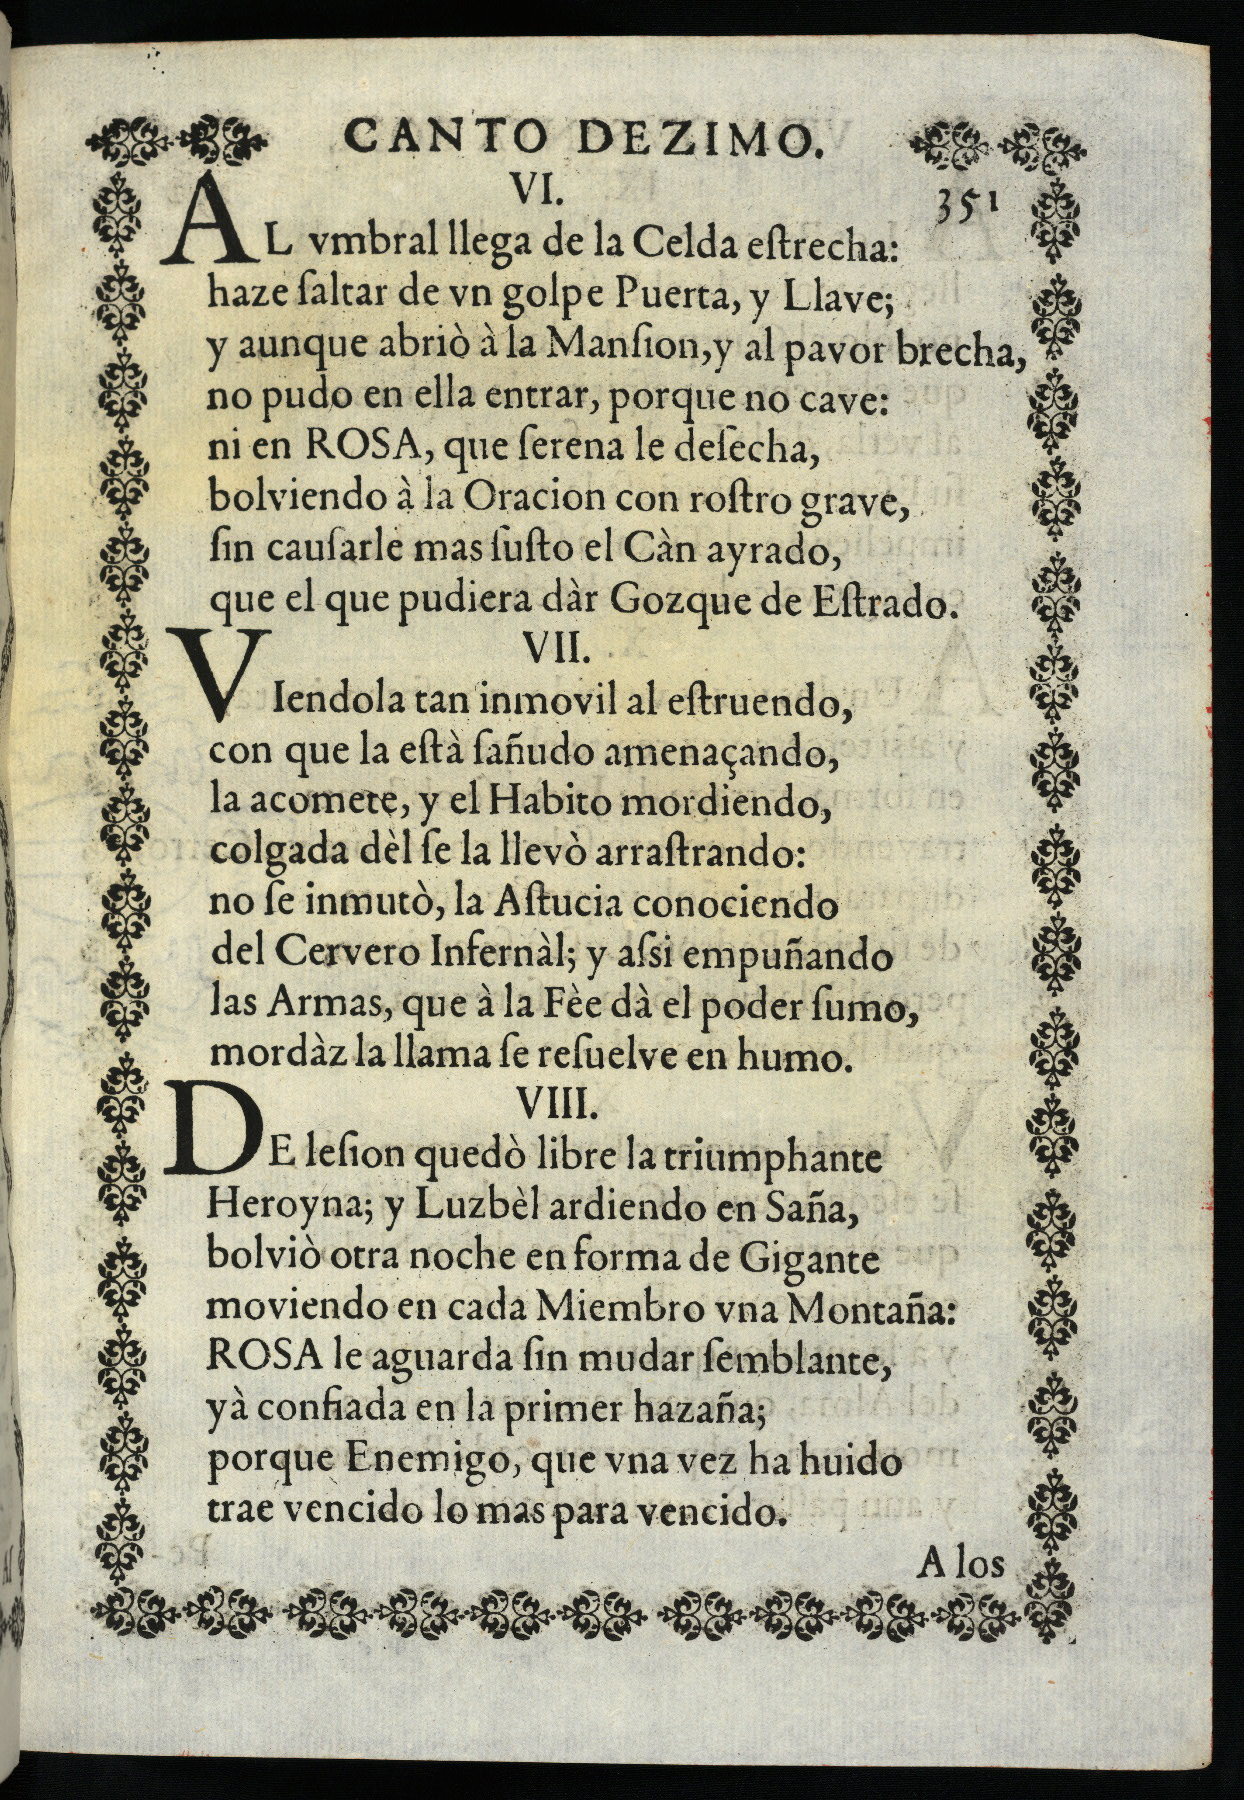 CANTO DEZIMO.
VI.
351
AL vmbral llega de la Celda eſtrecha:
haze ſaltar de vn golpe Puerta, y Llave;
y aunque abriò à la Manſion, y al pavor brecha,
no pudo en ella entrar, porque no cave:
ni en ROSA, que ſerena le deſecha,
bolviendo à la Oracion con roſtro grave,
ſin cauſarle mas ſuſto el Càn ayrado,
que el que pudiera dàr Gozque de Eſtrado.
VII.
VIendola tan inmovil al eſtruendo,
con que la eſtà ſañudo amenaçando,
la acomete, y el Habito mordiendo,
colgada dèl ſe la llevò arraſtrando:
no ſe inmutò, la Aſtucia conociendo
del Cervero Infernàl; y aſsi empuñando
las Armas, que à la Fèe dà el poder ſumo,
mordàz la llama ſe reſuelve en humo.
VIII.
DE leſion quedò libre la triumphante
Heroyna; y Luzbèl ardiendo en Saña,
bolviò otra noche en forma de Gigante
moviendo en cada Miembro vna Montaña:
ROSA le aguarda ſin mudar ſemblante,
yà confiada en la primer hazaña;
porque Enemigo, que vna vez ha huido
trae vencido lo mas para vencido.
A los